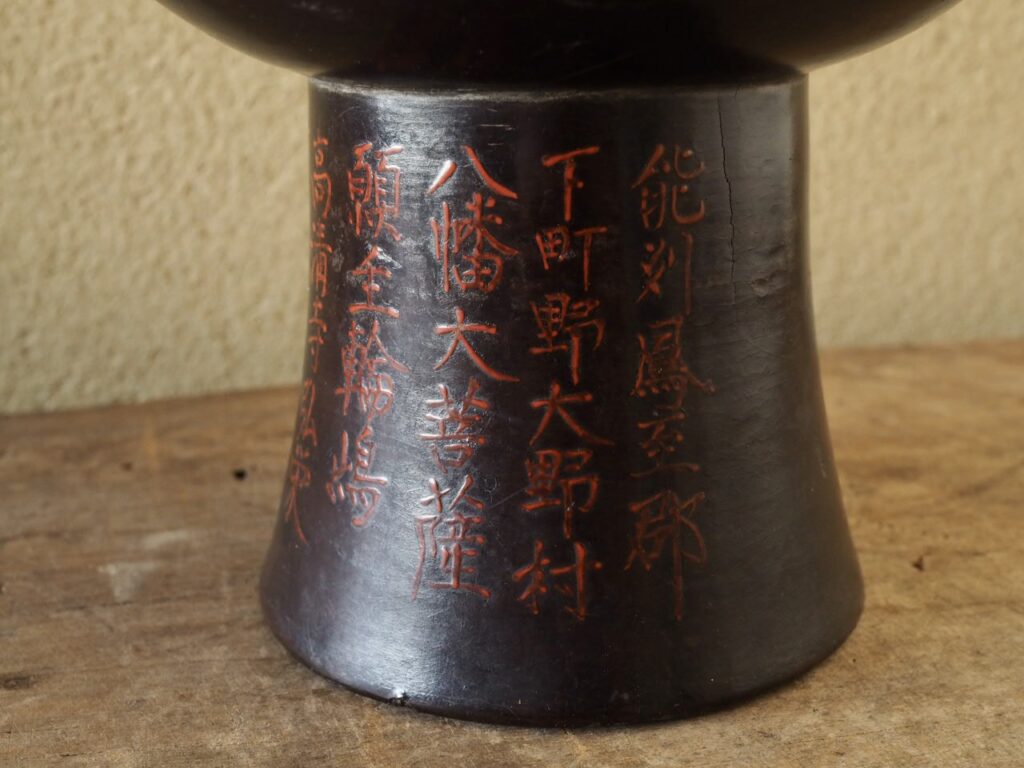 能刕鳳至郡
下町野大野村
八幡大菩薩
願主輪嶋